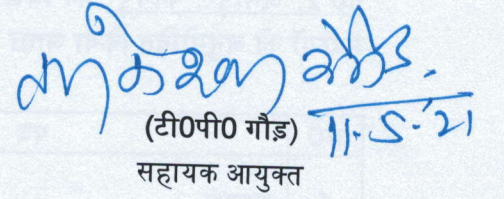 गौड़
11-5-'21
(टी0पी0 गौड़)
सहायक आयुक्त